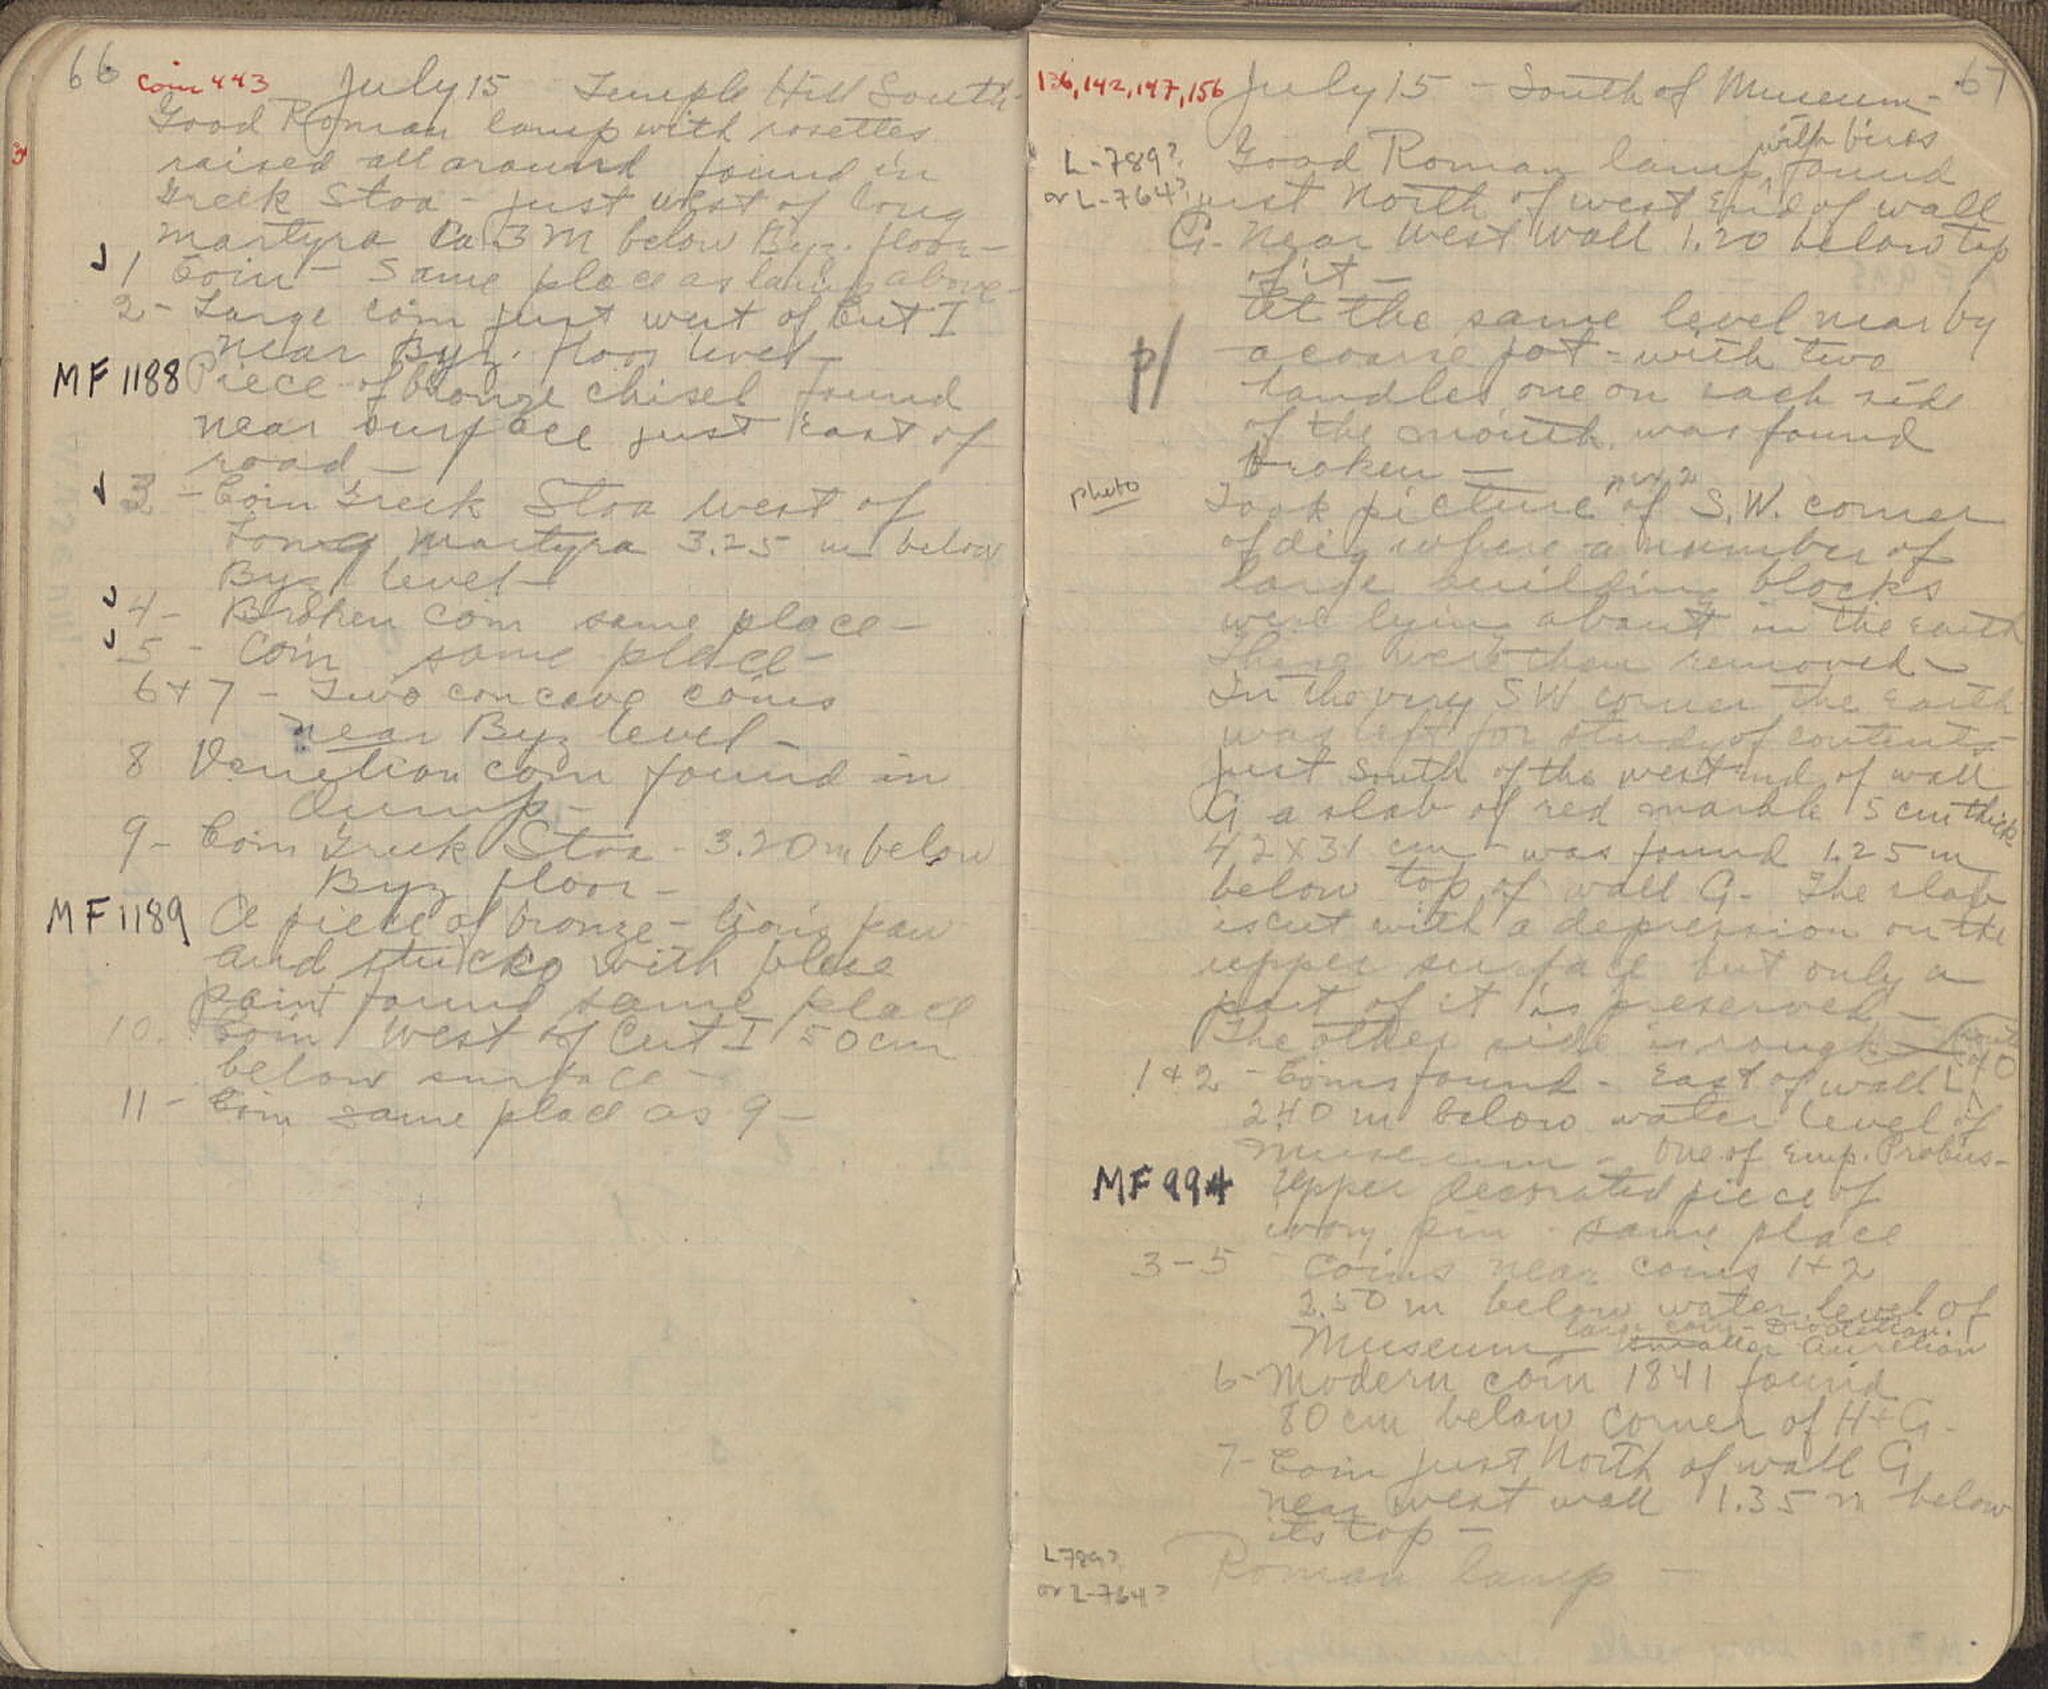 66 Coin 443 July 15 Temple Hill South-
Good Roman lamp with rosettes
raised all around found in
Greek Stoa - just west of long
martyra Ca 3 M below Byz. floor -
1 Coin - Same place as lamp above -
2 - Large coin just west of Cut I
near Byz. floor level -
MF 1188 Piece of bronze chisel found
near surface just East of
road -
3 - Coin Greek Stoa west of
Long Martyra 3.25 m below
Byz level -
4 - Broken coin same place -
5 - Coin same place -
6 + 7 - Two concave coins
near Byz level -
8 Venetian coin found in
dump -
9 - Coin Greek Stoa - 3.20 m below
Byz floor -
MF 1189 A piece of bronze - lion's paw
and stucko with blue
paint found same place
10. Coin West of Cut I 50 cm
below surface -
11 - Coin same place as 9 -
136, 142, 147, 156 July 15 - South of Museum - 67
with birds
L-789? Good Roman lamp, found
or L-764? just North of west end of wall
G. near West Wall 1.20 below top
of it -
At the same level near by
p/ a coarse pot - with two
handles, one on each side
of the mouth. was found
broken -
photo Took picture of S.W. corner
of dig where a number of
large building blocks
were lying about in the earth
These were then removed -
In the very SW corner the earth
was left for study of contents -
just South of the west end of wall
G a slab of red marble 5 cm thick
42 x 31 cm - was found 1.25 m
below top of wall G. The slab
is cut with a depression on the
upper surface but only a
part of it is preserved -
The other side is rough -
1 + 2 - Coins found - East of wall L
2.40 m below water level of
Museum - One of Emp. Probus -
MF 994 Upper decorated piece of
ivory pin - same place
3 - 5 Coins near coins 1 + 2
2.50 m below water level of
large coin - Diocletian.
Museum - smaller Aurelian
6 - Modern coin 1841 found
80 cm below corner of H + G -
7 - Coin just North of wall G
near west wall 1.35 m below
its top -
L789?
or L-764? Roman lamp -